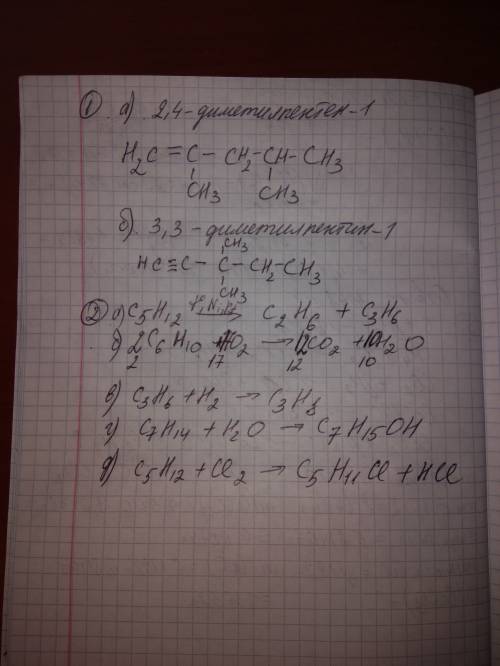 ① а) 2,4-диметилпентен-1
H₂C=C-CH₂-CH-CH₃
CH₃ CH₃
б) 3,3-диметилпентин-1
CH₃
HC≡C-C-CH₂-CH₃
CH₃
② а) C₅H₁₂ → C₂H₆ + C₃H₆
б) 2C₆H₁₀ + O₂ → 12CO₂ + 10H₂O
2 17 12 10
в) C₃H₆ + H₂ → C₃H₈
г) C₇H₁₄ + H₂O → C₇H₁₅OH
д) C₅H₁₂ + Cl₂ → C₅H₁₁Cl + HCl